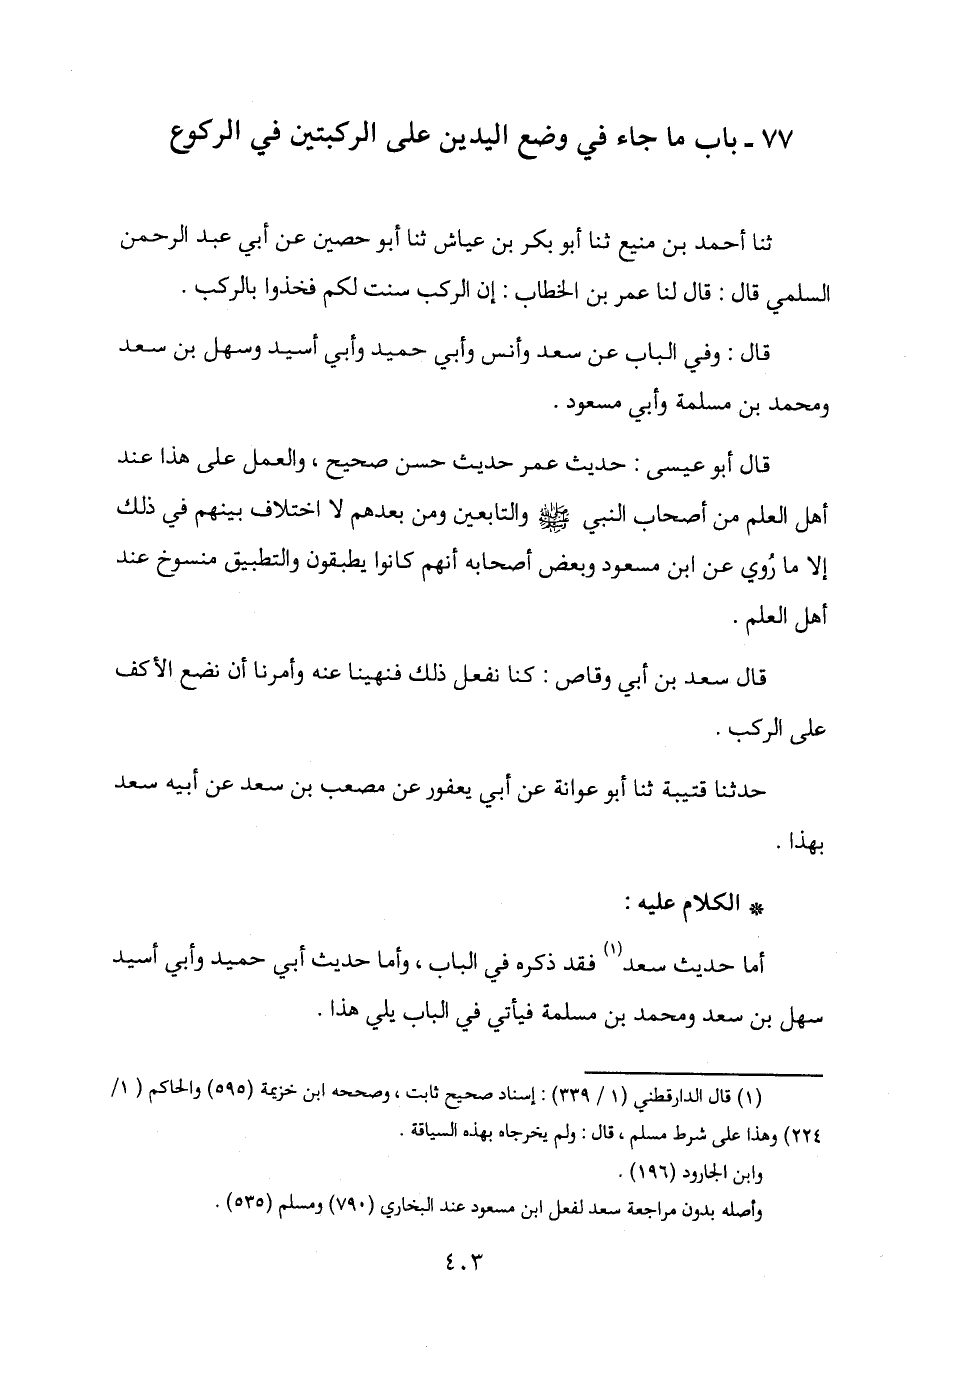 ٧٧ ـ باب ما جاء في وضع اليدين على الركبتين في الركوع
ثنا أحمد بن منيع ثنا أبو بكر بن عياش ثنا أبو حصين عن أبي عبد الرحمن
السلمي قال : قال لنا عمر بن الخطاب : إن الركب سنت لكم فخذوا بالركب .
قال : وفي الباب عن سعد وأنس وأبي حميد وأبي أسيد وسهل بن سعد
ومحمد بن مسلمة وأبي مسعود .
قال أبو عيسى : حديث عمر حديث حسن صحيح ، والعمل على هذا عند
أهل العلم من أصحاب النبي ﷺ والتابعين ومن بعدهم لا اختلاف بينهم في ذلك
إلا ما رُوي عن ابن مسعود وبعض أصحابه أنهم كانوا يطبقون والتطبيق منسوخ عند
أهل العلم .
قال سعد بن أبي وقاص : كنا نفعل ذلك فنهينا عنه وأمرنا أن نضع الأكف
على الركب .
حدثنا قتيبة ثنا أبو عوانة عن أبي يعفور عن مصعب بن سعد عن أبيه سعد
بهذا .
* الكلام عليه :
أما حديث سعد(١) فقد ذكره في الباب ، وأما حديث أبي حميد وأبي أسيد
سهل بن سعد ومحمد بن مسلمة فيأتي في الباب يلي هذا .
(١) قال الدارقطني (١ / ٣٣٩) : إسناد صحيح ثابت ، وصححه ابن خزيمة (٥٩٥) والحاكم (١/
٢٢٤) وهذا على شرط مسلم ، قال : ولم يخرجاه بهذه السياقة .
وابن الجارود (١٩٦) .
وأصله بدون مراجعة سعد لفعل ابن مسعود عند البخاري (٧٩٠) ومسلم (٥٣٥) .
٤٠٣